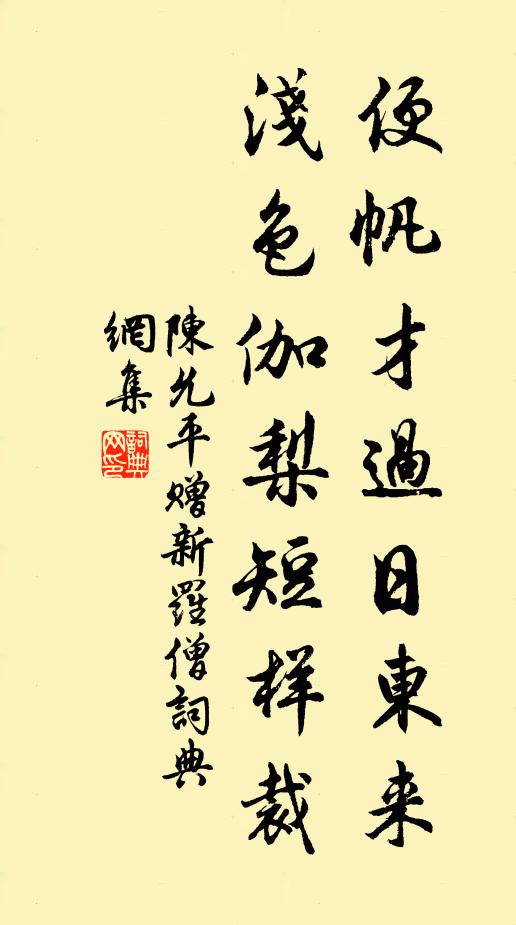 便帆才過日東来
淺色伽梨短样裁
陳允平赠新羅僧詞典
網集
詞典網印